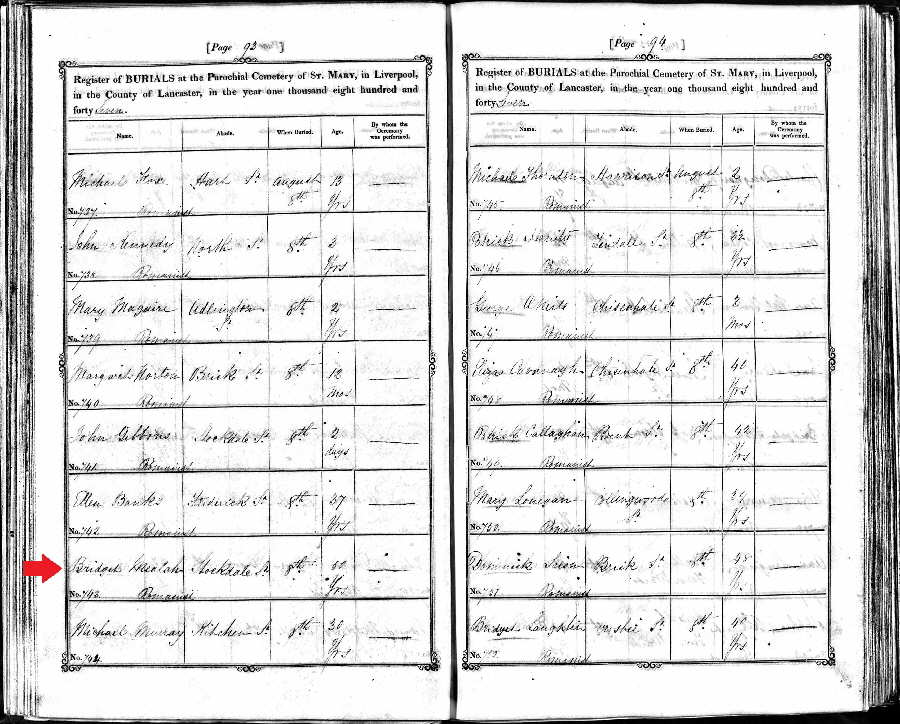 [Page 93]
Register of BURIALS at the Parochial Cemetery of ST. MARY, in Liverpool,
in the County of Lancaster, in the year one thousand eight hundred and
forty Seven.
Name. Abode. When Buried. Age. By whom the Ceremony was performed.
Michael Hart St August 13
8th Yrs
No. 737. Romanist
John Kennedy North St 8th 2
Yrs
No. 738. Romanist
Mary Maguire Adlington 8th 2
St Yrs
No. 739 Romanist
Margaret Horton Brick St 8th 12
Mos
No. 740 Romanist
John Gibbons Stockdale St 8th 2
days
No. 741. Romanist
Ellen Banks St 8th 37
Yrs
No. 742. Romanist
Bridget Stockdale St 8th
Yrs
No. 743. Romanist
Michael Murray Kitchen St 8th 30
Yrs
No. 744.
[Page 94]
Register of BURIALS at the Parochial Cemetery of ST. MARY, in Liverpool,
in the County of Lancaster, in the year one thousand eight hundred and
forty Seven.
Name. Abode. When Buried. Age. By whom the Ceremony was performed.
Michael Harrison St August 2
8th Yrs
No. 745. Romanist
Patrick St 8th
Yrs
No. 746 Romanist
George Chisenhale St 8th 2
Mos
No. Romanist
Eliza Cavanagh Chisenhale St 8th 40
Yrs
No. 748 Romanist
Callaghan St 8th 42
Yrs
No. Romanist
Mary 8th
St Yrs
No. Romanist
St 8th 48
Yrs
No. 751 Romanist
Bridget Laughlin St 8th 40
Yrs
No. Romanist